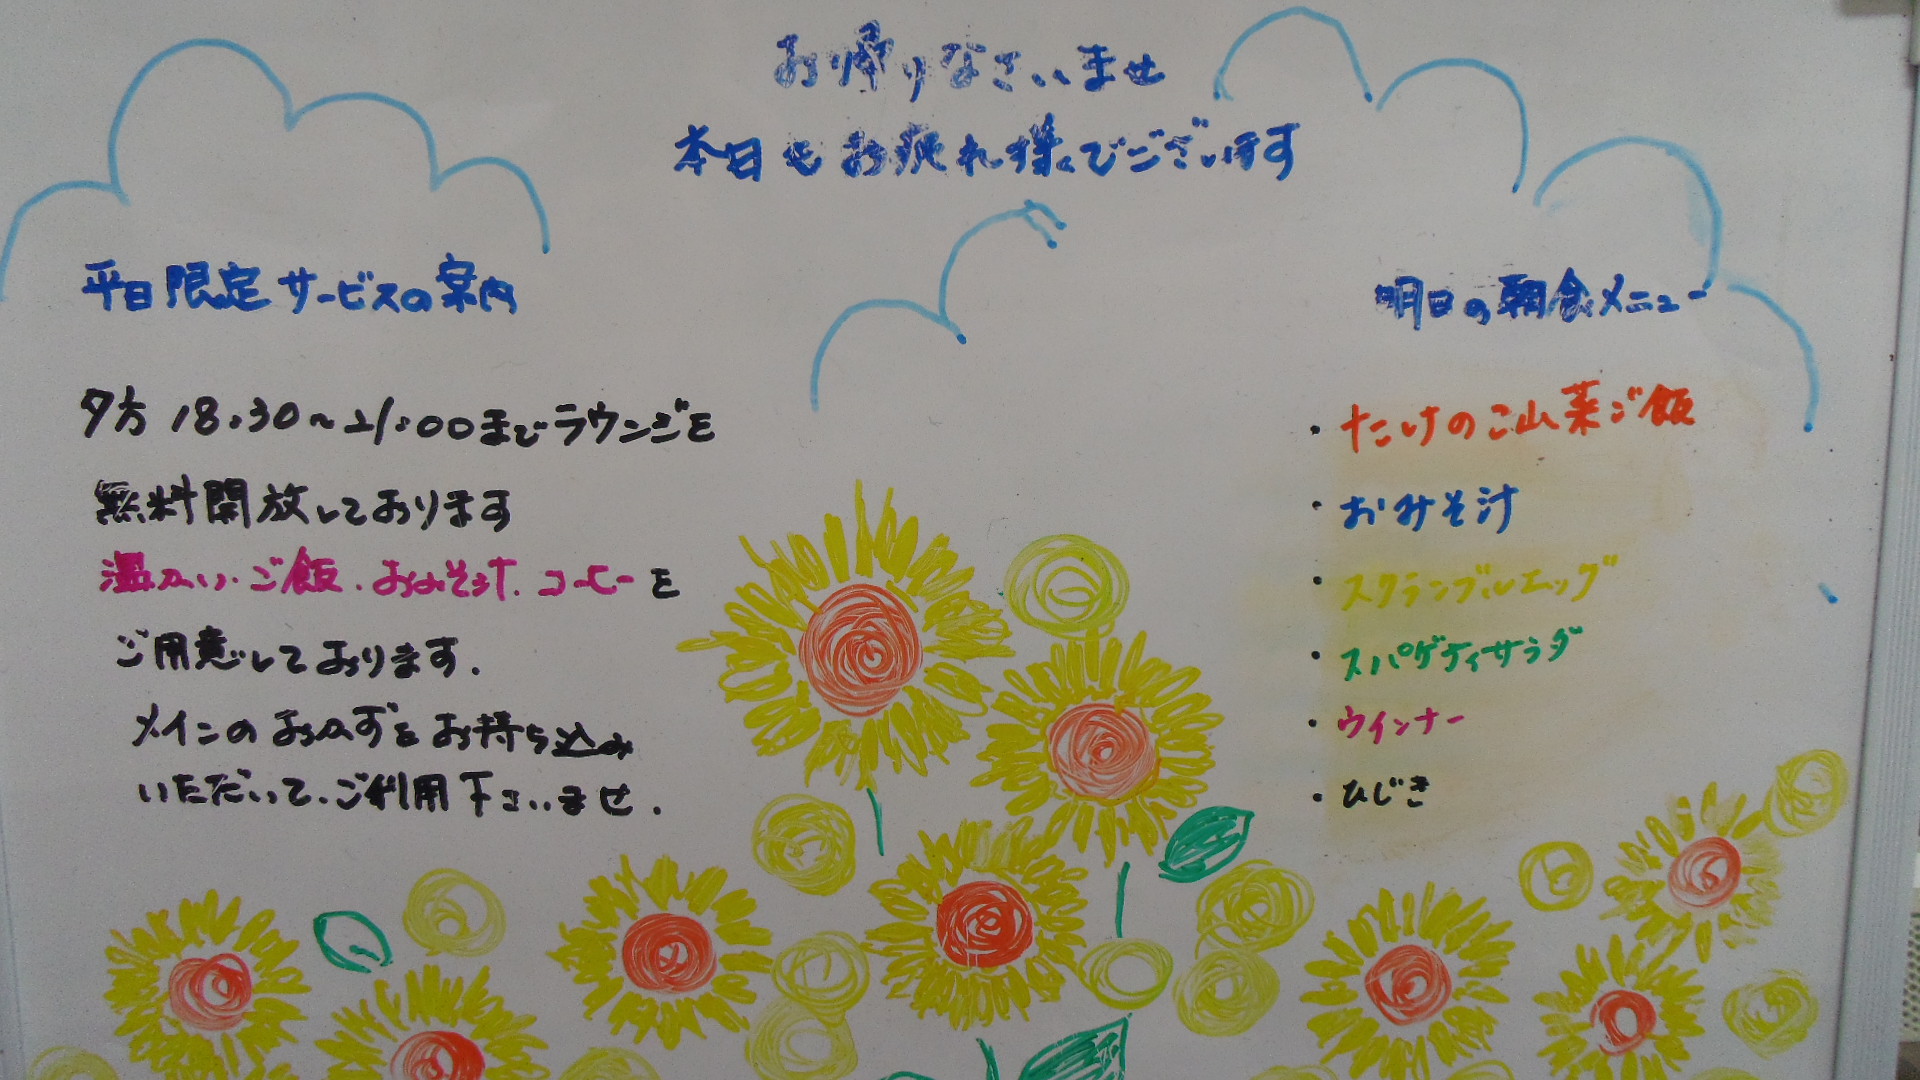 お帰りなさいませ
本日もお疲れ様でございます
平日限定サービスの案内
夕方 18:30～21:00までラウンジを
無料開放しております
温かい・ご飯・おみそ汁・コーヒーを
ご用意しております.
メインのおかずをお持ち込み
いただいて、ご利用下さいませ.
明日の朝食メニュー
・たけのこ山菜ご飯
・おみそ汁
・スクランブルエッグ
・スパゲティサラダ
・ウインナー
・ひじき